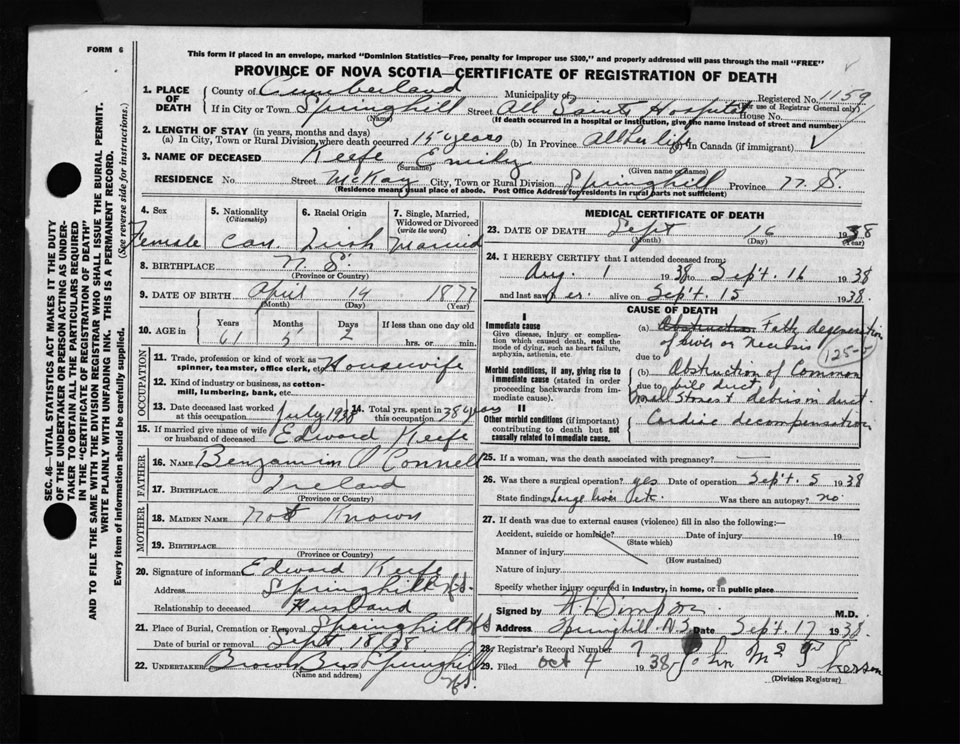 FORM 6
This form if placed in an envelope, marked "Dominion Statistics—Free, penalty for improper use $300," and properly addressed will pass through the mail "FREE"
PROVINCE OF NOVA SCOTIA—CERTIFICATE OF REGISTRATION OF DEATH
1. PLACE OF DEATH
County of Cumberland Municipality of Registered No. 1159
(For use of Registrar General only)
If in City or Town Springhill Street All Saints Hospital House No.
(Name) (If death occurred in a hospital or institution, give the name instead of street and number)
2. LENGTH OF STAY (in years, months and days)
(a) In City, Town or Rural Division, where death occurred 15 years (b) In Province All her life In Canada (if immigrant)
3. NAME OF DECEASED Keefe, Emily
(Surname) (Given name or names)
RESIDENCE No. Street McKay City, Town or Rural Division Springhill Province N. S.
(Residence means usual place of abode. Post Office Address for residents in rural parts not sufficient)
4. Sex 5. Nationality (Citizenship) 6. Racial Origin 7. Single, Married, Widowed or Divorced (write the word)
Female Can. Irish Married
8. BIRTHPLACE N. S.
(Province or Country)
9. DATE OF BIRTH April 14 1877
(Month) (Day) (Year)
10. AGE in Years Months Days If less than one day old
61 5 2 hrs. or min.
OCCUPATION
11. Trade, profession or kind of work as spinner, teamster, office clerk, etc. Housewife
12. Kind of industry or business, as cotton-mill, lumbering, bank, etc.
13. Date deceased last worked at this occupation July 1938 14. Total yrs. spent in this occupation 38 years
15. If married give name of wife or husband of deceased Edward Keefe
FATHER
16. NAME Benjamin O Connell
17. BIRTHPLACE Ireland
(Province or Country)
MOTHER
18. MAIDEN NAME Not Known
19. BIRTHPLACE
(Province or Country)
20. Signature of informant Edward Keefe
Address Springhill N.S.
Relationship to deceased Husband
21. Place of Burial, Cremation or Removal Springhill N.S.
Date of burial or removal Sept. 18/38
22. UNDERTAKER Brown Bros Springhill N.S.
(Name and address)
MEDICAL CERTIFICATE OF DEATH
23. DATE OF DEATH Sept 16 1938
(Month) (Day) (Year)
24. I HEREBY CERTIFY that I attended deceased from:
Aug. 1 1938 to Sept. 16 1938
and last saw her alive on Sept. 15 1938.
CAUSE OF DEATH
I
Immediate cause
Give disease, injury or complication which caused death, not the mode of dying, such as heart failure, asphyxia, asthenia, etc.
(a) Obstruction Fatty degeneration
of liver or Necrosis
125-5
due to
Morbid conditions, if any, giving rise to immediate cause (stated in order proceeding backwards from immediate cause).
(b) Obstruction of Common
due to bile duct,
Small Stones & debris in duct.
II
Other morbid conditions (if important) contributing to death but not causally related to immediate cause.
Cardiac decompensation
25. If a woman, was the death associated with pregnancy? —
26. Was there a surgical operation? yes Date of operation Sept. 5 1938
State findings Large liver etc. Was there an autopsy? no.
27. If death was due to external causes (violence) fill in also the following:—
Accident, suicide or homicide? Date of injury 19
(State which)
Manner of injury
(How sustained)
Nature of injury
Specify whether injury occurred in industry, in home, or in public place
Signed by M.D.
Address Springhill N.S. Date Sept. 17 1938.
28. Registrar's Record Number 7
29. Filed Oct 4 1938 John
(Division Registrar)
SEC. 46—VITAL STATISTICS ACT MAKES IT THE DUTY
OF THE UNDERTAKER OR PERSON ACTING AS UNDER-
TAKER TO OBTAIN ALL THE PARTICULARS REQUIRED
IN THE "CERTIFICATE OF REGISTRATION OF DEATH"
AND TO FILE THE SAME WITH THE DIVISION REGISTRAR WHO SHALL ISSUE THE BURIAL PERMIT.
WRITE PLAINLY WITH UNFADING INK. THIS IS A PERMANENT RECORD.
Every item of information should be carefully supplied. (See reverse side for instructions.)